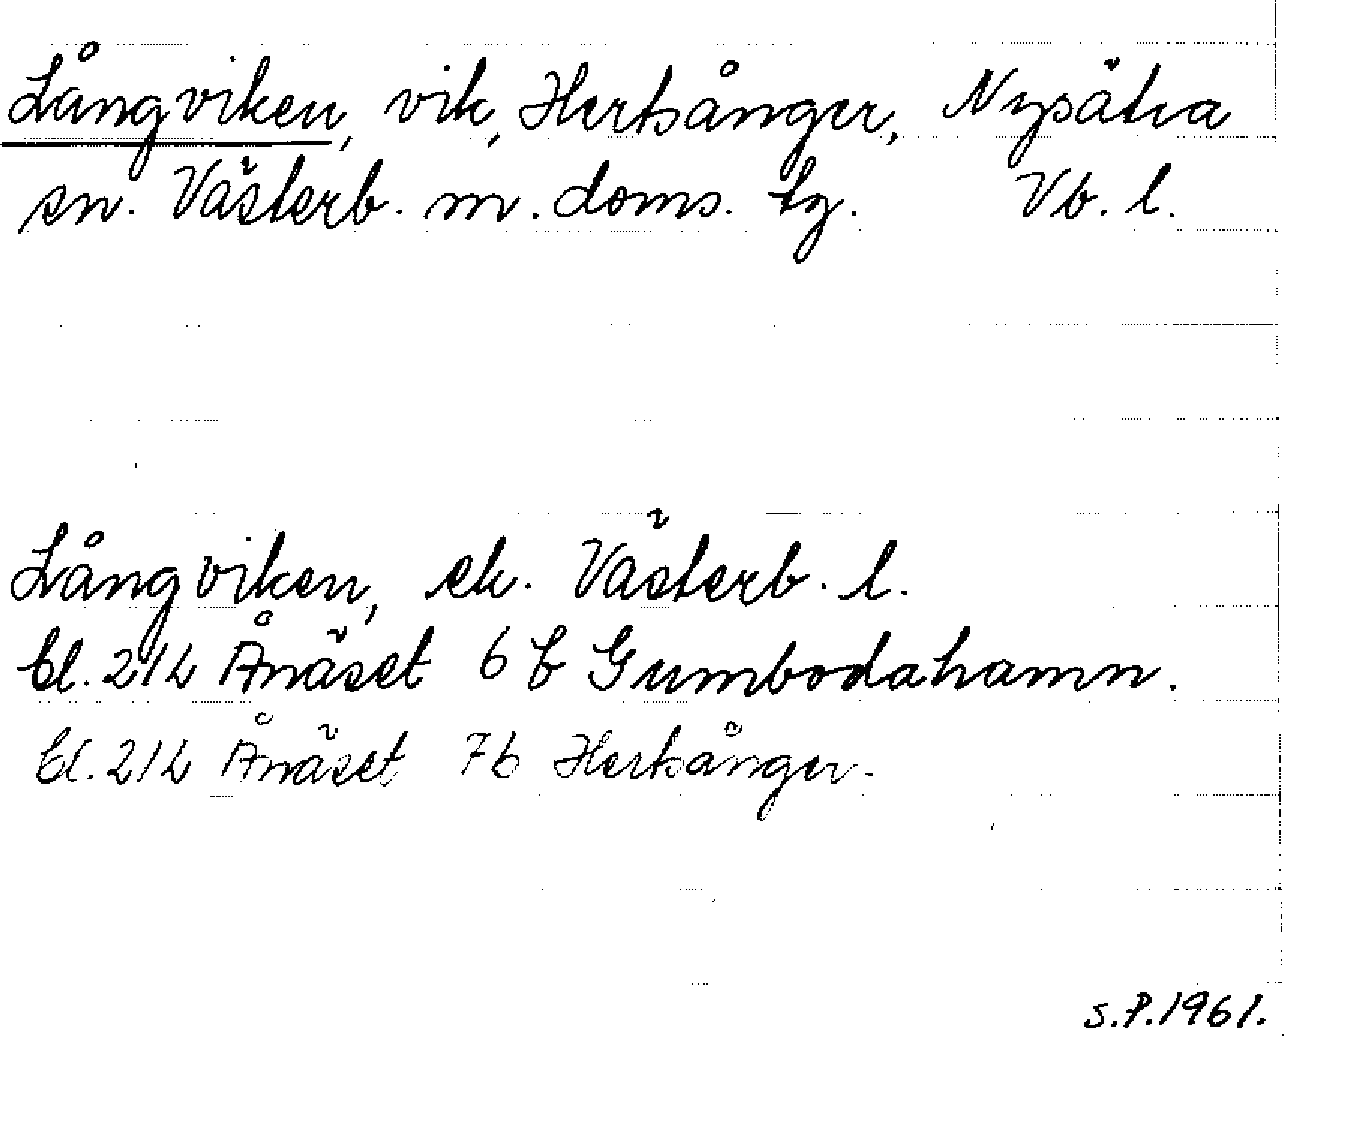 Långviken, vik, Hertsånger, Nysätra
sn. Västerb. m. doms. tg. Vb. l.
Långviken, ek. Västerb. l.
bl. 21L Ånäset 6 b Gumbodahamn.
bl. 21L Ånäset 7b Hertsånger.
S.P. 1961.